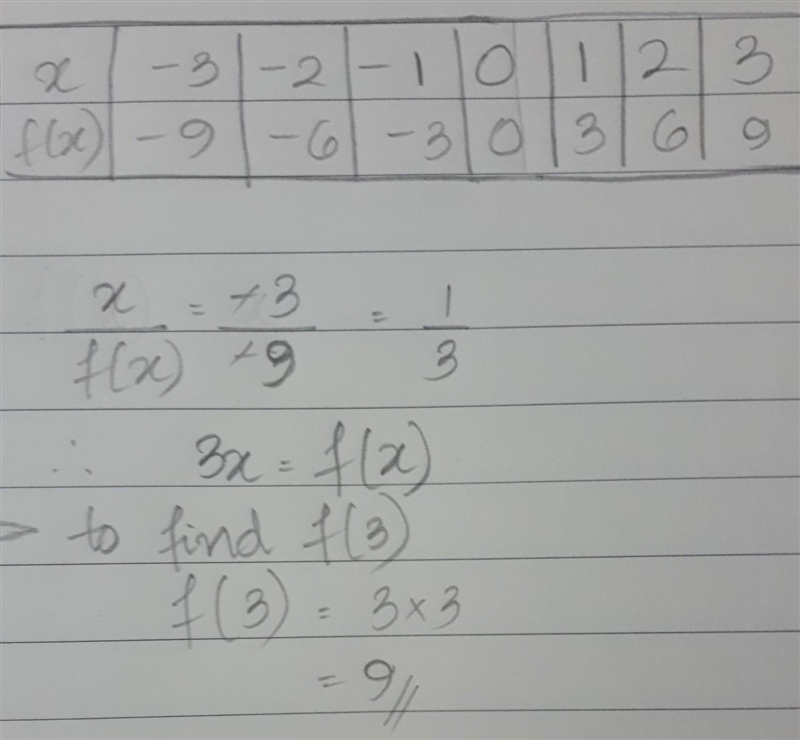 x | -3 | -2 | -1 | 0 | 1 | 2 | 3
f(x) | -9 | -6 | -3 | 0 | 3 | 6 | 9
x/f(x) = -3/-9 = 1/3
∴ 3x = f(x)
> to find f(3)
f(3) = 3×3
= 9//